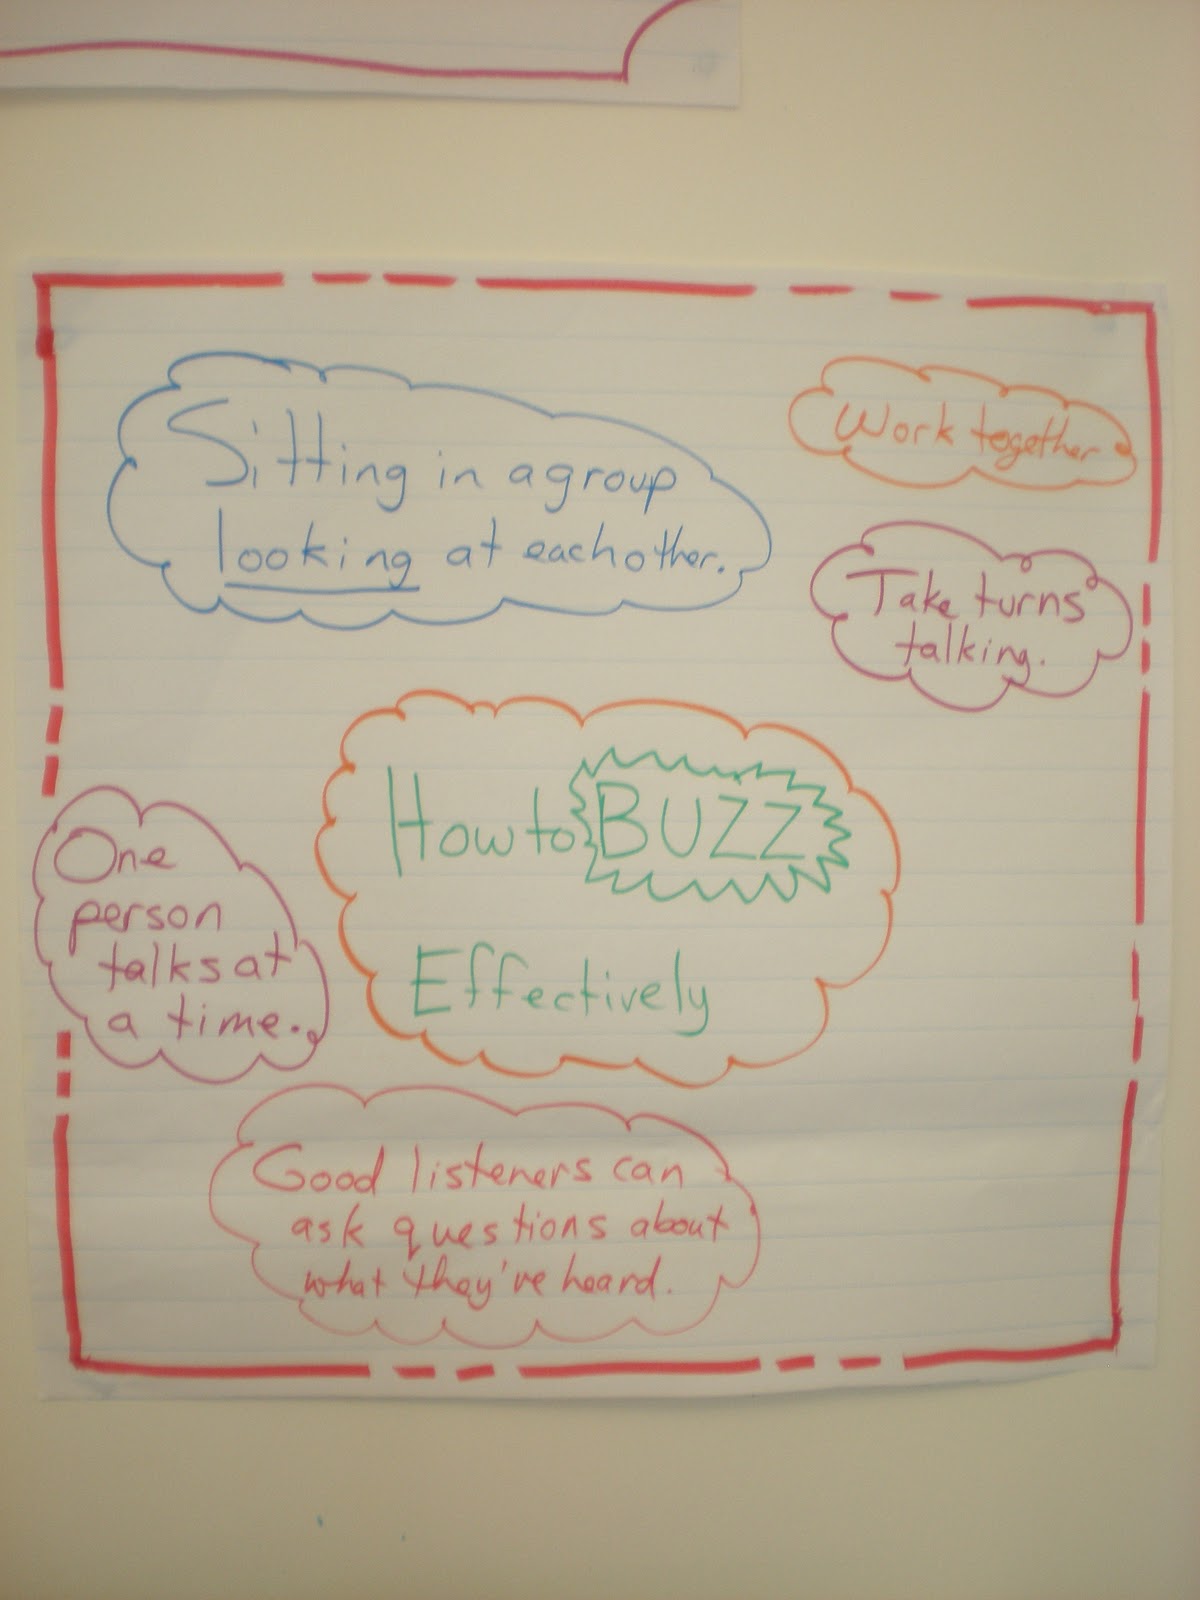 Sitting in a group
looking at eachother.
Work together
Take turns
talking.
How to BUZZ
Effectively
One
person
talks at
a time.
Good listeners can
ask questions about
what they've heard.